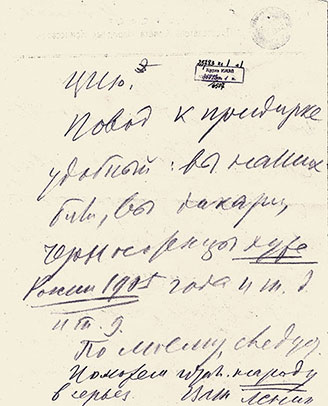 цию.
Повод к придирке
удобный: вы наших
били, вы дикари,
черносотенцы хуже
России 1905 года и т. д.
и т. д.
По моему, следует.
Поможем народу
в серьез Ленин